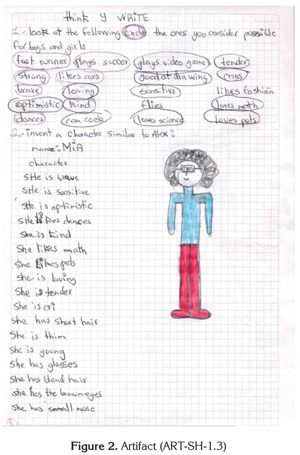 think y WRITE
1- look at the following circle the ones you consider possible
for boys and girls
fast runner plays soccer plays video game tender
strong likes cars good at drawing cries
brave loving sensitive likes fashion
optimistic kind flies loves math
dances can cook loves science loves pets
2- invent a character similar to Alex:
name: MiA
character
SHe is brave
SHe is sensitive
SHe is optimistic
SHe likes dances
She is kind
She likes math
She likes pets
She is loving
She is tender
She is cri
she has short hair
She is thim
She is young
She has glasses
She has blond hair
she has the brown eyes
She has small nose
Figure 2. Artifact (ART-SH-1.3)